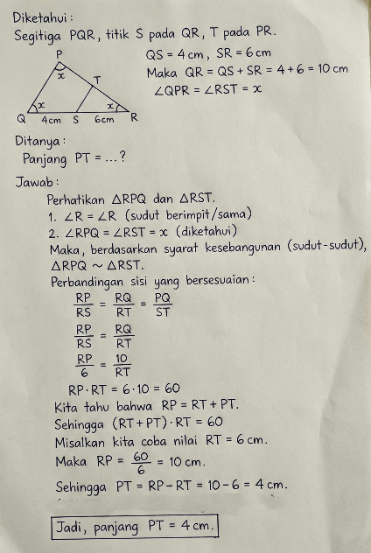 Diketahui:
Segitiga PQR, titik S pada QR, T pada PR.
P
x
T
x
x
Q
4cm
S
6cm
R
QS = 4 cm, SR = 6 cm
Maka QR = QS + SR = 4 + 6 = 10 cm
∠QPR = ∠RST = x
Ditanya:
Panjang PT = ...?
Jawab:
Perhatikan △RPQ dan △RST.
1. ∠R = ∠R (sudut berimpit/sama)
2. ∠RPQ = ∠RST = x (diketahui)
Maka, berdasarkan syarat kesebangunan (sudut-sudut),
△RPQ ~ △RST.
Perbandingan sisi yang bersesuaian:
RP/RS = RQ/RT = PQ/ST
RP/RS = RQ/RT
RP/6 = 10/RT
RP·RT = 6·10 = 60
Kita tahu bahwa RP = RT + PT.
Sehingga (RT + PT)·RT = 60
Misalkan kita coba nilai RT = 6 cm.
Maka RP = 60/6 = 10 cm.
Sehingga PT = RP - RT = 10 - 6 = 4 cm.
Jadi, panjang PT = 4 cm.